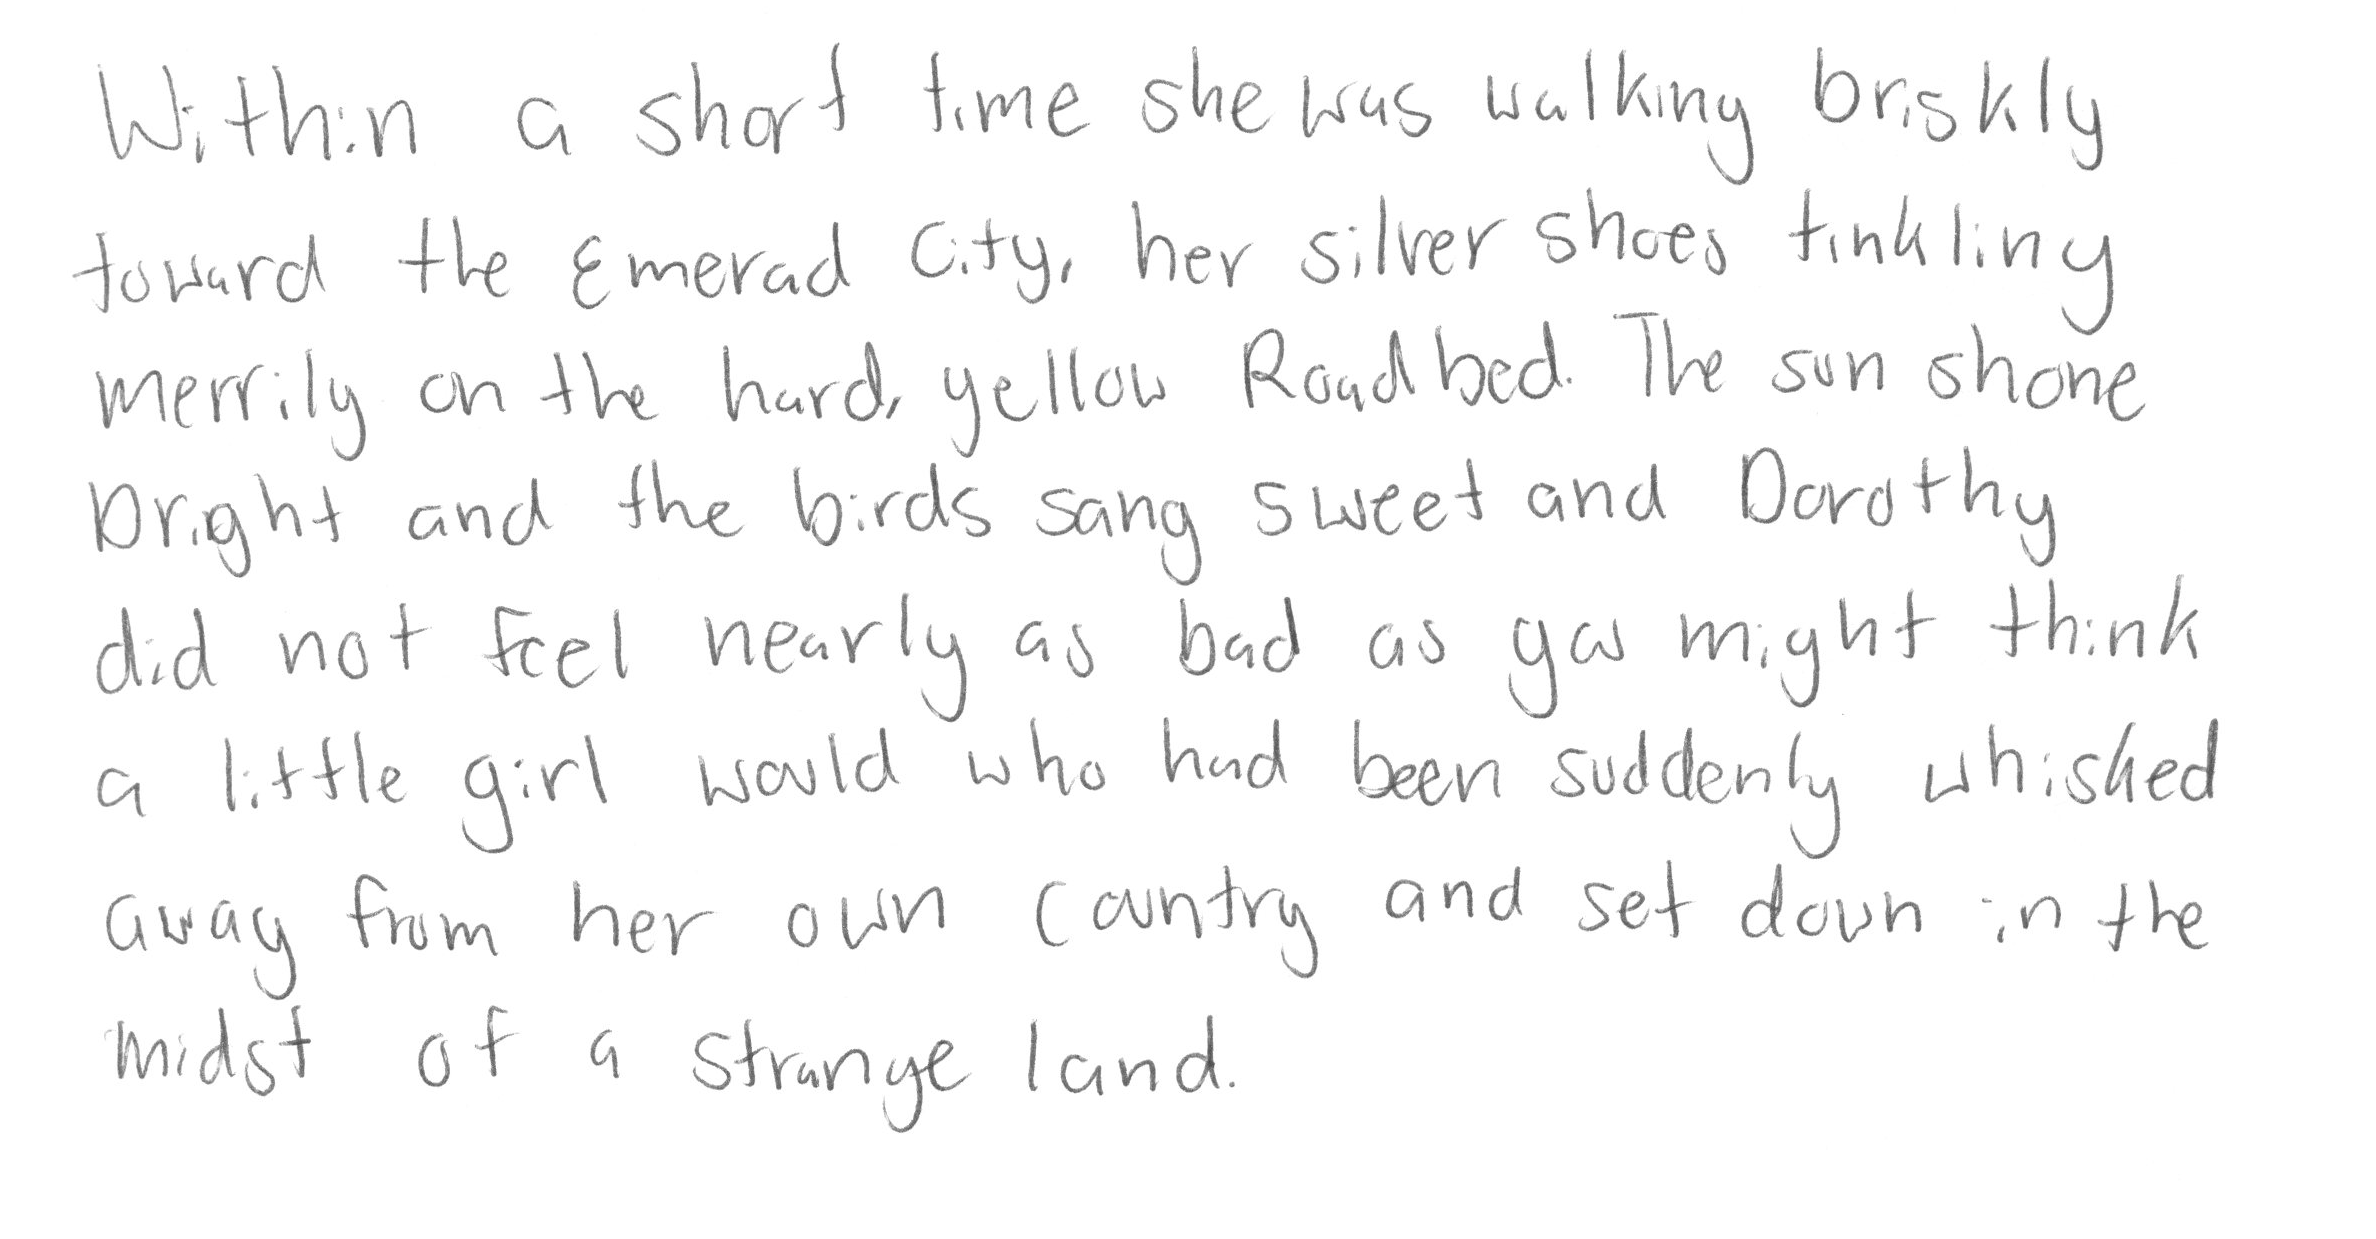 Within a short time she was walking briskly
toward the Emerad City, her silver shoes tinkling
merrily on the hard, yellow Roadbed. The sun shone
bright and the birds sang sweet and Dorothy
did not feel nearly as bad as you might think
a little girl would who had been suddenly whisked
away from her own country and set down in the
midst of a strange land.